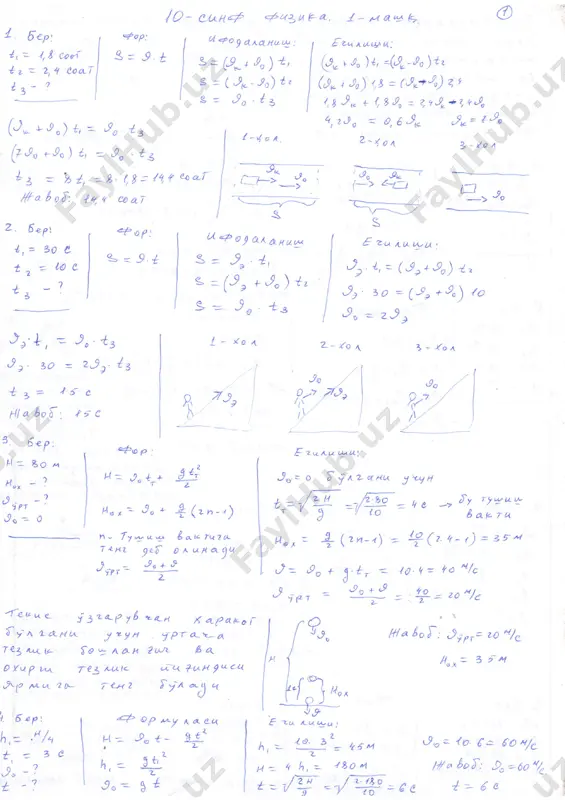 10-синф физика. 1-машқ.
1
1. Бер:
t₁ = 1,8 соат
t₂ = 2,4 соат
t₃ - ?
Фор:
S = ϑ·t
Ифодаланиш:
S = (ϑк + ϑ₀) t₁
S = (ϑк - ϑ₀) t₂
S = ϑ₀ · t₃
Ечилиши:
(ϑк + ϑ₀) t₁ = (ϑк - ϑ₀) t₂
(ϑк + ϑ₀) 1,8 = (ϑк - ϑ₀) 2,4
1,8ϑк + 1,8ϑ₀ = 2,4ϑк - 2,4ϑ₀
4,2ϑ₀ = 0,6ϑк ϑк = 7ϑ₀
(ϑк + ϑ₀) t₁ = ϑ₀ t₃
(7ϑ₀ + ϑ₀) t₁ = ϑ₀ t₃
t₃ = 8t₁ = 8 · 1,8 = 14,4 соат
Жавоб: 14,4 соат
1-ҳол
2-ҳол
3-ҳол
ϑк
ϑ₀
S
ϑ₀
ϑк
S
ϑ₀
2. Бер:
t₁ = 30 с
t₂ = 10 с
t₃ - ?
Фор:
S = ϑ·t
Ифодаланиш
S = ϑэ · t₁
S = (ϑэ + ϑ₀) t₂
S = ϑ₀ · t₃
Ечилиши:
ϑэ · t₁ = (ϑэ + ϑ₀) t₂
ϑэ · 30 = (ϑэ + ϑ₀) 10
ϑ₀ = 2ϑэ
ϑэ · t₁ = ϑ₀ · t₃
ϑэ · 30 = 2ϑэ · t₃
t₃ = 15 с
Жавоб: 15 с
1-ҳол
2-ҳол
3-ҳол
ϑэ
ϑ₀
ϑэ
ϑ₀
3 Бер:
H = 80 м
Hох - ?
ϑўрт - ?
ϑ₀ = 0
Фор:
H = ϑ₀tт + gtт²/2
Hох = ϑ₀ + g/2 (2n-1)
n - Тушиш вақтига
тенг деб олинади
ϑўрт = (ϑ₀ + ϑ)/2
Ечилиши:
ϑ₀ = 0 бўлгани учун
tт = √(2H/g) = √(2·80/10) = 4с → бу тушиш
вақти
Hох = g/2 (2n-1) = 10/2 (2·4-1) = 35 м
ϑ = ϑ₀ + g·tт = 10·4 = 40 м/с
ϑўрт = (ϑ₀ + ϑ)/2 = 40/2 = 20 м/с
Текис ўзгарувчан ҳаракат
бўлгани учун ўртача
тезлик бошланғич ва
охирги тезлик йиғиндиси
ярмига тенг бўлади
H
ϑ₀
1с
Hох
ϑ
Жавоб: ϑўрт = 20 м/с
Hох = 35 м
4 Бер:
h₁ = H/4
t₁ = 3 с
ϑ₀ - ?
t - ?
Формуласи
H = ϑ₀t - gt²/2
h₁ = gt₁²/2
ϑ₀ = gt
Ечилиши:
h₁ = 10·3²/2 = 45 м
H = 4h₁ = 180 м
t = √(2H/g) = √(2·180/10) = 6 с
ϑ₀ = 10·6 = 60 м/с
Жавоб: ϑ₀ = 60 м/с
t = 6 с
FaylHub.uz
FaylHub.uz
FaylHub.uz